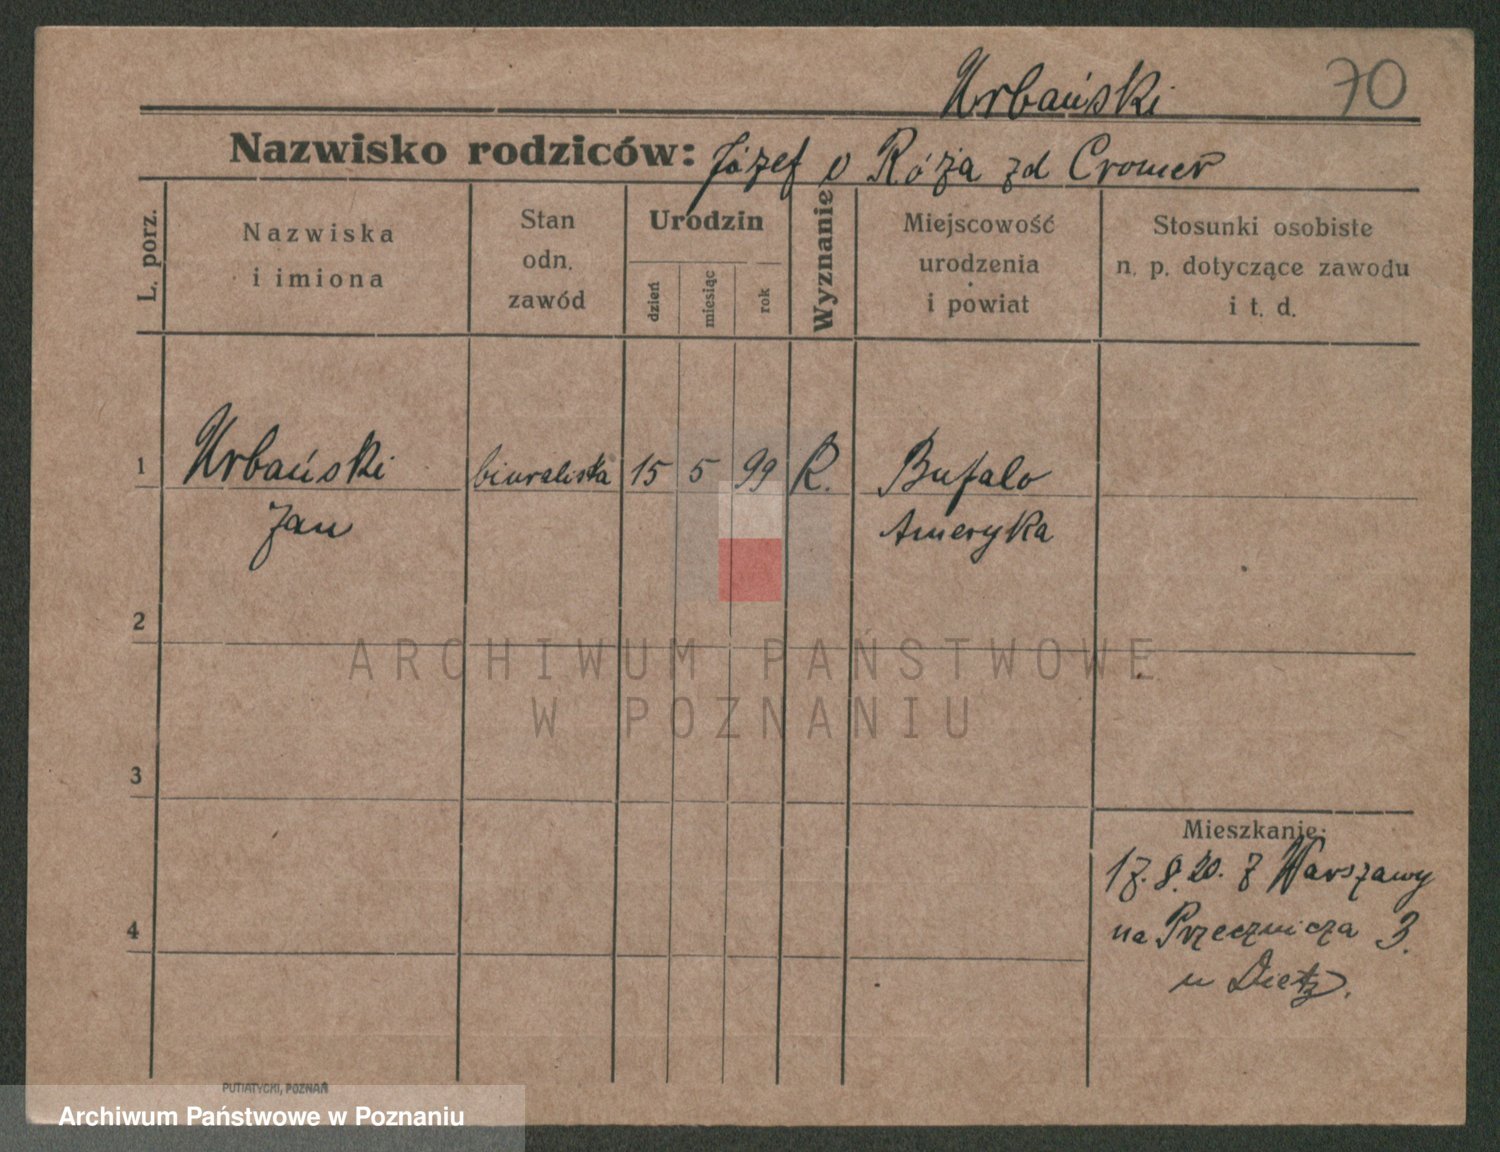 Urbański 70
Nazwisko rodziców: Józef v Róża zd Cromer
L. porz.
Nazwiska
i imiona
Stan
odn.
zawód
Urodzin
dzień
miesiąc
rok
Wyznanie
Miejscowość
urodzenia
i powiat
Stosunki osobiste
n. p. dotyczące zawodu
i t. d.
1 Urbański biuralista 15 5 99 R. Bufalo
Jan Ameryka
2
ARCHIWUM PAŃSTWOWE
W POZNANIU
3
Mieszkanie:
17. 8. 20. z Warszawy
4 na Przecznicza 3.
u Dietz.
PUTIATYCKI, POZNAŃ
Archiwum Państwowe w Poznaniu